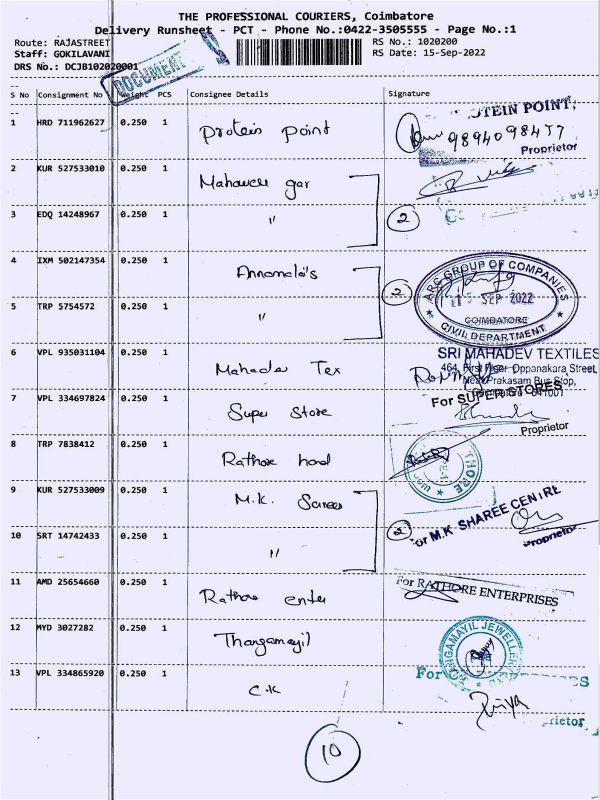 THE PROFESSIONAL COURIERS, Coimbatore
Delivery Runsheet - PCT - Phone No.:0422-3505555 - Page No.:1
Route: RAJASTREET RS No.: 1020200
Staff: GOKILAVANI RS Date: 15-Sep-2022
DRS No.: DCJB102020001
DOCUMENT
S No Consignment No Weight PCS Consignee Details Signature
1 HRD 711962627 0.250 1 Protein point
PROTEIN POINT,
9894098477
Proprietor
2 KUR 527533010 0.250 1 Mahaveer gar
3 EDQ 14248967 0.250 1 " 2
4 IXM 502147354 0.250 1 Annamalai's
ARC GROUP OF COMPANIES
15 SEP 2022
COIMBATORE
CIVIL DEPARTMENT
5 TRP 5754572 0.250 1 " 2
6 VPL 935031104 0.250 1 Mahadev Tex
SRI MAHADEV TEXTILES
464, First Floor, Oppanakara Street,
Near Prakasam Bus Stop,
Coimbatore - 641001
7 VPL 334697824 0.250 1 Super Store
For SUPER STORES
Proprietor
8 TRP 7838412 0.250 1 Rathore
9 KUR 527533009 0.250 1 M.K. Sarees
10 SRT 14742433 0.250 1 " 2
For M.K SHAREE CENTRE
Proprietor
11 AMD 25654660 0.250 1 Rathore enter
For RATHORE ENTERPRISES
12 MYD 3027282 0.250 1 Thangamayil
THANGAMAYIL JEWELLERY
13 VPL 334865920 0.250 1 C.K
For
Priya
Proprietor
10